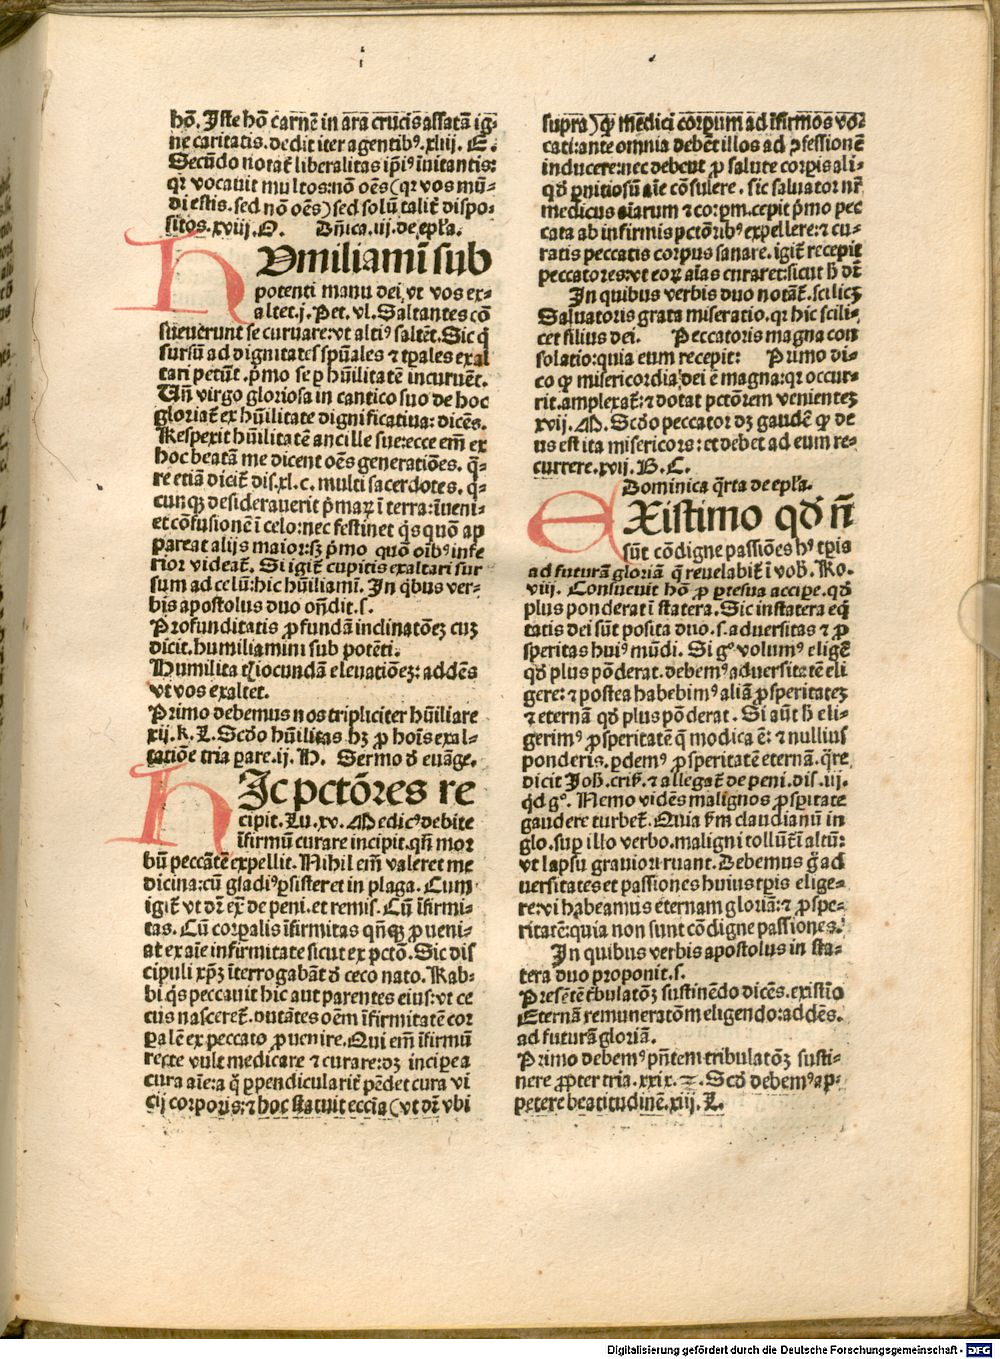 hō. Iste hō carnē in ara crucis assatā ig⸗
ne caritatis. dedit iter agentibꝰ. xliij. E.
Secūdo notat᷑ liberalitas ip̄iꝰ inuitantis:
qꝛ vocauit multos: nō oēs (qꝛ vos mū⸗
di estis. sed nō oēs) sed solū talit᷑ dispo⸗
sitos. xviij. O. Dn̄ica .iij. de ep̄la.
hVmiliamī sub
potenti manu dei, vt vos ex⸗
altet. j. Pet. vl. Saltantes cō
sueuerunt se curuare: vt altiꝰ saltēt. Sic q̇
sursū ad dignitates sp̄uales ⁊ tp̄ales exal
tari petūt. p̄mo se ꝑ hūilitatē incuruēt.
Vn̄ virgo gloriosa in cantico suo de hoc
gloriat᷑ ex hūilitate dignificatiua: dicēs.
Respexit hūilitatē ancille sue: ecce em̄ ex
hoc beatā me dicent oēs generatiōes. q̄⸗
re etiā dicit᷑ dis. xl. c. multi sacerdotes. q̇⸗
cunqꝫ desiderauerit p̄maꝶ ī terra: īueni⸗
et cōfusionē ī celo: nec festinet q̇s quō ap
pareat alijs maior: sꝫ p̄mo quō oībꝰ infe
rior videat᷑. Si igit᷑ cupitis exaltari sur
sum ad celū: hic hūiliamī. In q̇bus ver⸗
bis apostolus duo on̄dit. s.
Profunditatis ꝓfundā inclinatōeꝫ cuꝫ
dicit. humiliamini sub potēti.
Humilitatꝭ iocundā eleuatiōeꝫ: addēs
vt vos exaltet.
Primo debemus nos tripliciter hūiliare
xij. k. L. Scd̄o hūilitas hꝫ ꝓ hoīs exal⸗
tatiōe tria ꝑare. ij. H. Sermo d̄ euāge.
hIc pctōres re
cipit. Lu. xv. Medicꝰ debite
īfirmū curare incipit. qn̄ mor
bū peccātē expellit. Nihil em̄ valeret me
dicina: cū gladiꝰ ꝑsisteret in plaga. Cum
igit᷑ vt dr̄ ex̄ de peni. et remis. Cū īfirmi⸗
tas. Cū corꝑalis īfirmitas qn̄qꝫ ꝓueni⸗
at ex aīe infirmitate sicut ex pctō. Sic dis
cipuli xp̄ꝫ īterrogabāt d̄ ceco nato. Rab⸗
bi q̇s peccauit hic aut parentes eius: vt ce
cus nasceret᷑. putātes oēm īfirmitatē cor
ꝑalē ex peccato ꝓuenire. Qui em̄ īfirmū
recte vult medicare ⁊ curare: dꝫ incipe a
cura aīe: a q̇ ꝑpendicularit᷑ pēdet cura vi
cij corporis: ⁊ hoc statuit eccīa (vt dr̄ vbi
supra) ꝙ medici corꝑum ad īfirmos vo⸗
cati: ante omnia debēt illos ad ꝓfessionē
inducere: nec debent ꝓ salute corꝑis ali⸗
qd̄ ꝑnitiosū aīe cōsulere. sic saluator nr̄
medicus aīarum ⁊ corꝑm. cepit p̄mo pec
cata ab infirmis pctōribꝰ expellere: ⁊ cu⸗
ratis peccatis corpus sanare. igit᷑ recepit
peccatores: vt eoꝝ aīas curaret: sicut h̄ dr̄
In quibus verbis duo notāt᷑. scilicꝫ
Saluatoris grata miseratio. qꝛ hic scili⸗
cet filius dei. Peccatoris magna con
solatio: quia eum recepit: Primo di⸗
co ꝙ misericordia dei ē magna: qꝛ occur⸗
rit. amplexat᷑: ⁊ dotat pctōrem venienteꝫ
xvij. M. Scd̄o peccator dꝫ gaudē ꝙ de
us est ita misericors: et debet ad eum re⸗
currere. xvij. B. C.
Dominica q̄rta de ep̄la.
eXistimo qd̄ n̄
sūt cōdigne passiōes hꝰ tp̄is
ad futurā gloriā q̄ reuelabit᷑ ī vob̄. Ro.
viij. Consueuit hō ꝓ p̄te sua accipe. qd̄
plus ponderat ī statera. Sic in statera eq̇
tatis dei sūt posita duo. s. aduersitas ⁊ ꝓ
speritas huiꝰ mūdi. Si gͦ volumꝰ eligē
qd̄ plus pōderat. debemꝰ aduersitatē eli
gere: ⁊ postea habebimꝰ aliā ꝓsperitateꝫ
⁊ eternā qd̄ plus pōderat. Si aūt h̄ eli⸗
gerimꝰ ꝓsperitatē q̄ modica ē: ⁊ nullius
ponderis. ꝑdemꝰ ꝓsperitatē eternā. q̄re
dicit Joh̄. criſ. ⁊ allegat᷑ de peni. dis. iij.
q̇d gͦ. Nemo vidēs malignos ꝓspitate
gaudere turbet᷑. Quia fm̄ claudianū in
glo. suꝑ illo verbo. maligni tollūt᷑ ī altū:
vt lapsu grauiori ruant. Debemus q̇̄ ad
uersitates et passiones huius tp̄is elige⸗
re: vt habeamus eternam gloriā: ⁊ ꝓspe⸗
ritatē: quia non sunt cōdigne passiones.
In quibus verbis apostolus in sta⸗
tera duo proponit. s.
Presētē t̄bulatōꝫ sustinēdo dicēs. existīo
Eternā remuneratōm eligendo: addēs.
ad futurā gloriā.
Primo debemꝰ pn̄tem tribulatōꝫ susti⸗
nere ꝓpter tria. xxix. Z. Scd̄o debemꝰ ap⸗
petere beatitudinē. xiij. L.
Digitalisierung gefördert durch die Deutsche Forschungsgemeinschaft - DFG